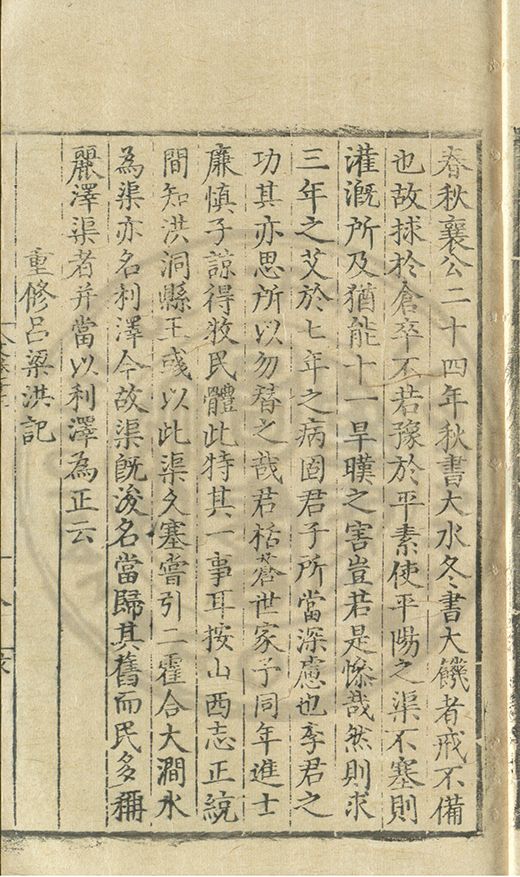 春秋襄公二十四年秋書大水冬書大饑者戒不備
也故捄於倉卒不若豫於平素使平陽之渠不塞則
灌溉所及猶能十一旱暵之害豈若是慘哉然則求
三年之艾於七年之病固君子所當深慮也李君之
功其亦思所以勿替之哉君栝蒼世家子同年進士
廉慎子諒得牧民體此特其一事耳按山西志正統
間知洪洞縣王彧以此渠久塞嘗引二霍合大澗水
為渠亦名利澤今故渠旣浚名當歸其舊而民多稱
麗澤渠者并當以利澤為正云
重修呂梁洪記